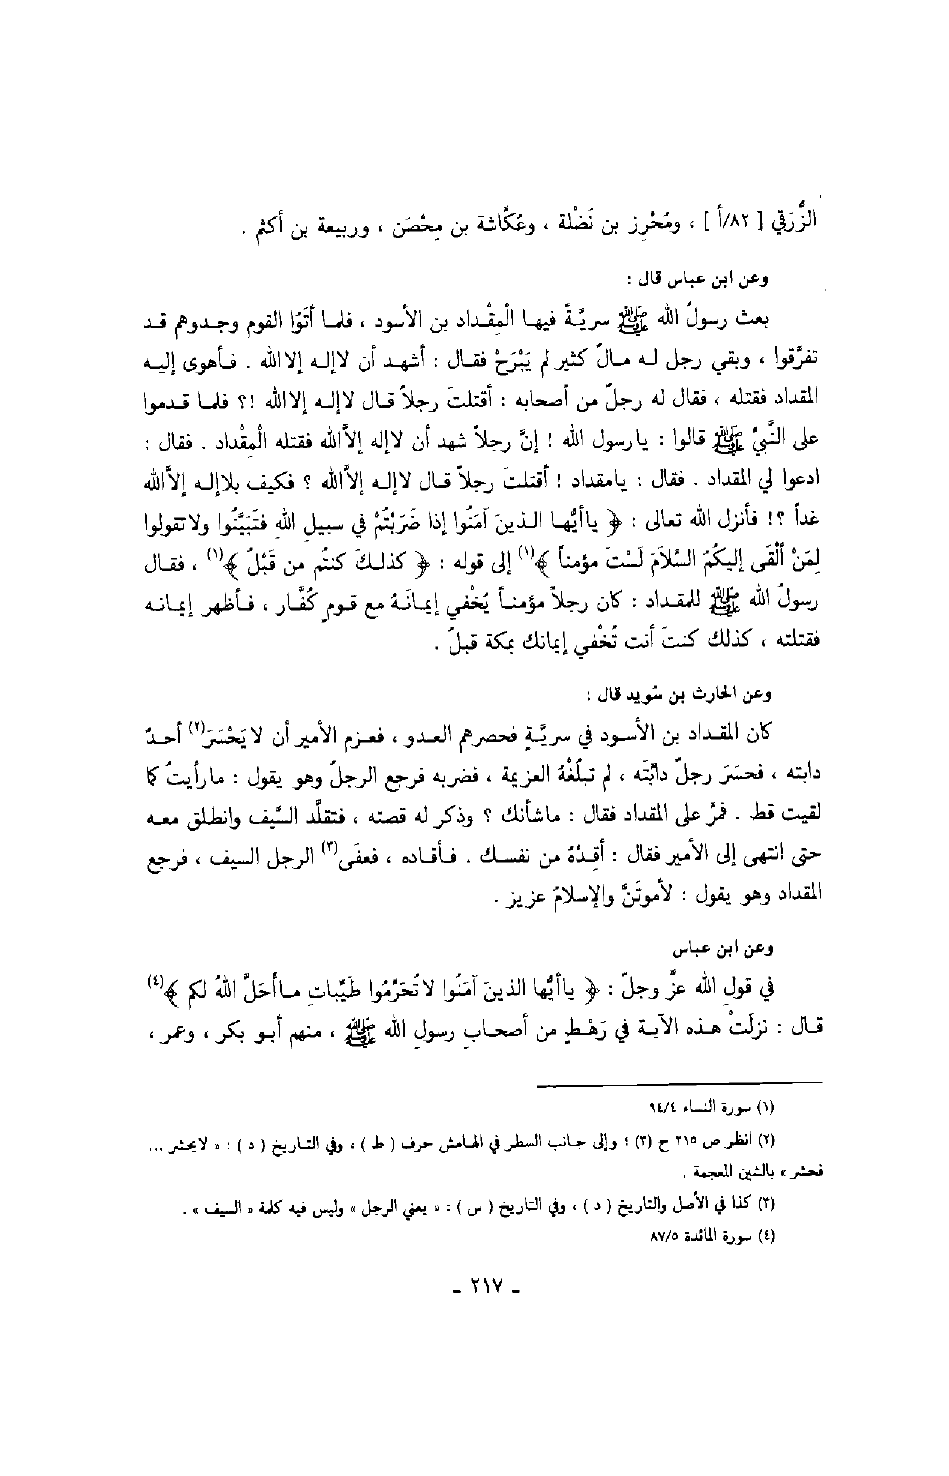 الزُّرَقي [ ٨٢/أ ] ، ومُحْرِز بن نَضْلة ، وعُكَّاشة بن مِحْصَن ، وربيعة بن أكثم .
وعن ابن عباس قال :
بعث رسولُ الله ﷺ سريّةً فيها الْمِقْداد بن الأسود ، فلما أتَوْا القوم وجدوهم قد
تفرَّقوا ، وبقي رجل له مالٌ كثير لم يَبْرَحْ فقال : أشهد أن لاإله إلاالله . فأهوى إليه
المقداد فقتله ، فقال له رجلٌ من أصحابه : أقتلتَ رجلاً قال لاإله إلاالله !؟ فلما قدموا
على النَّبيِّ ﷺ قالوا : يارسول الله ! إنَّ رجلاً شهد أن لاإله إلاَّالله فقتله الْمِقْداد . فقال :
ادعوا لي المقداد . فقال : يامقداد ! أقتلتَ رجلاً قال لاإله إلاَّالله ؟ فكيف بلاإله إلاَّالله
غداً ؟! فأنزل الله تعالى : ﴿ ياأيُّها الذينَ آمَنُوا إذا ضَرَبْتُمْ في سبيلِ اللهِ فَتَبَيَّنُوا ولاتقولوا
لِمَنْ ألْقَى إليكُمُ السَّلاَمَ لَسْتَ مؤمناً ﴾(١) إلى قوله : ﴿ كذلكَ كنتُم من قَبْلُ ﴾(١) ، فقال
رسولُ الله ﷺ للمقداد : كان رجلاً مؤمناً يُخْفي إيمانَهُ مع قومٍ كُفَّار ، فأظهر إيمانه
فقتلته ، كذلك كنتَ أنت تُخْفي إيمانك بمكة قبلُ .
وعن الحارث بن سُويد قال :
كان المقداد بن الأسود في سريَّةٍ فحصرهم العدو ، فعزم الأمير أن لايَحْسَرَ(٢) أحدٌ
دابته ، فحسَرَ رجلٌ دابَّتَه ، لم تبلُغْهُ العزيمة ، فضربه فرجع الرجلُ وهو يقول : مارأيتُ كما
لقيت قط . فمرَّ على المقداد فقال : ماشأنك ؟ وذكر له قصته ، فتقلَّد السَّيف وانطلق معه
حتى انتهى إلى الأمير فقال : أقِدْهُ من نفسك . فأقاده ، فعفَى(٣) الرجل السيف ، فرجع
المقداد وهو يقول : لأموتَنَّ والإسلامُ عزيز .
وعن ابن عباس
في قولِ الله عزَّ وجلّ : ﴿ ياأيُّها الذينَ آمَنُوا لاتُحَرِّمُوا طَيِّباتِ ماأحَلَّ اللهُ لكم ﴾(٤)
قال : نزلَتْ هذه الآية في رَهْطٍ من أصحابِ رسولِ الله ﷺ ، منهم أبو بكر ، وعمر ،
(١) سورة النساء ٩٤/٤
(٢) انظر ص ٢١٥ ح (٣) ؛ وإلى جانب السطر في الهامش حرف ( ط ) ، وفي التاريخ ( د ) : « لايحشر ...
فحشر » بالشين المعجمة .
(٣) كذا في الأصل والتاريخ ( د ) ، وفي التاريخ ( س ) : « يعني الرجل » وليس فيه كلمة « السيف » .
(٤) سورة المائدة ٨٧/٥
- ٢١٧ -